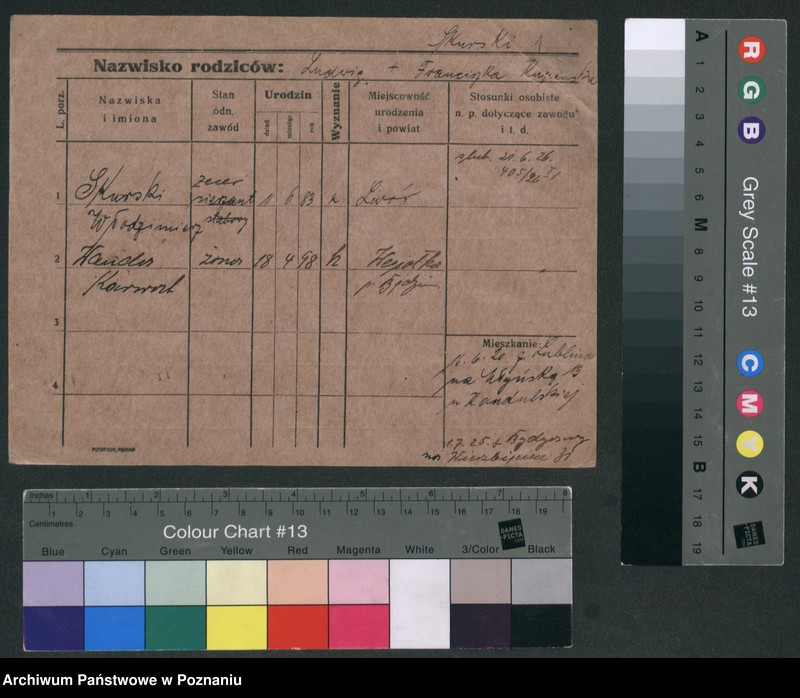 Skurski
Nazwisko rodziców: Ludwig + Franciszka
L. porz.
Nazwiska
i imiona
Stan
odn.
zawód
Urodzin
dzień
miesiąc
rok
Wyznanie
Miejscowość
urodzenia
i powiat
Stosunki osobiste
n. p. dotyczące zawodu
i t. d.
ślub. 20.6.26.
405/26
1
Skurski
Włodzimierz
zecer
11 6 83
Lwów
2
Wanda
żona
18 4 98
3
4
Mieszkanie:
16.6.20 z Lublina
na
u
1.7.25 z Bydgoszczy
81
Inches
1 2 3 4 5 6 7 8
1 2 3 4 5 6 7 8 9 10 11 12 13 14 15 16 17 18 19
Centimetres
Colour Chart #13
Blue Cyan Green Yellow Red Magenta White 3/Color Black
DANES
PICTA
.COM
A 1 2 3 4 5 6 M 8 9 10 11 12 13 14 15 B 17 18 19
R G B
Grey Scale #13
C M Y K
Archiwum Państwowe w Poznaniu